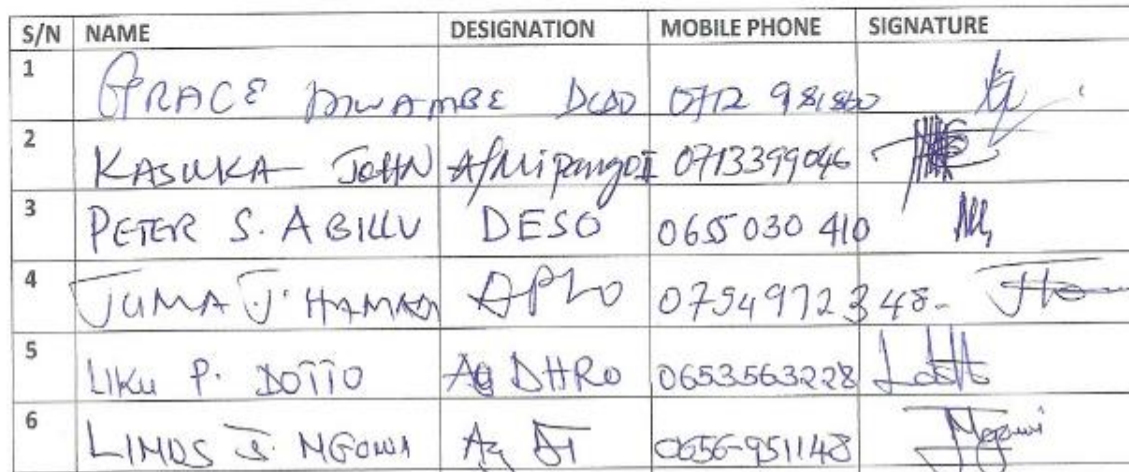 S/N NAME DESIGNATION MOBILE PHONE SIGNATURE
1 GRACE 0712 981860
2 KASUKA JOHN Af/Mipango II 0713399046
3 PETER S. ABILLU DESO 0655 030 410
4 JUMA J. HAMADI DPLO 0754972348-
5 LIKU P. DOTTO Ag DHRO 0653563228
6 Ag 0656-951148